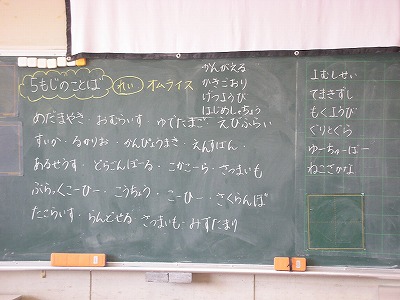 5もじのことば
れい オムライス
かんがえる
かきごおり
げつようび
はじめしゃちょう
めだまやき・おむらいす・ゆでたまご・えびふらい
すいか・るかりお・かんぴょうまき・えんすばん・
あるせうす・どらごんぼーる・こかこーら・さつまいも
ぶらっくこーひー・こうちょう・こーひー・さくらんぼ
たこらいす・らんどせる さつまいも・みずたまり
てまきずし
もくようび
ぐりとぐら
ゆーちゅーばー
ねこざかな